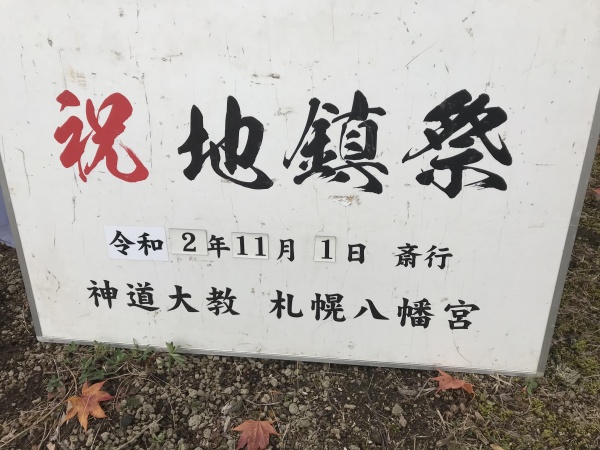 祝 地鎮祭
令和2年11月1日 斎行
神道大教 札幌八幡宮